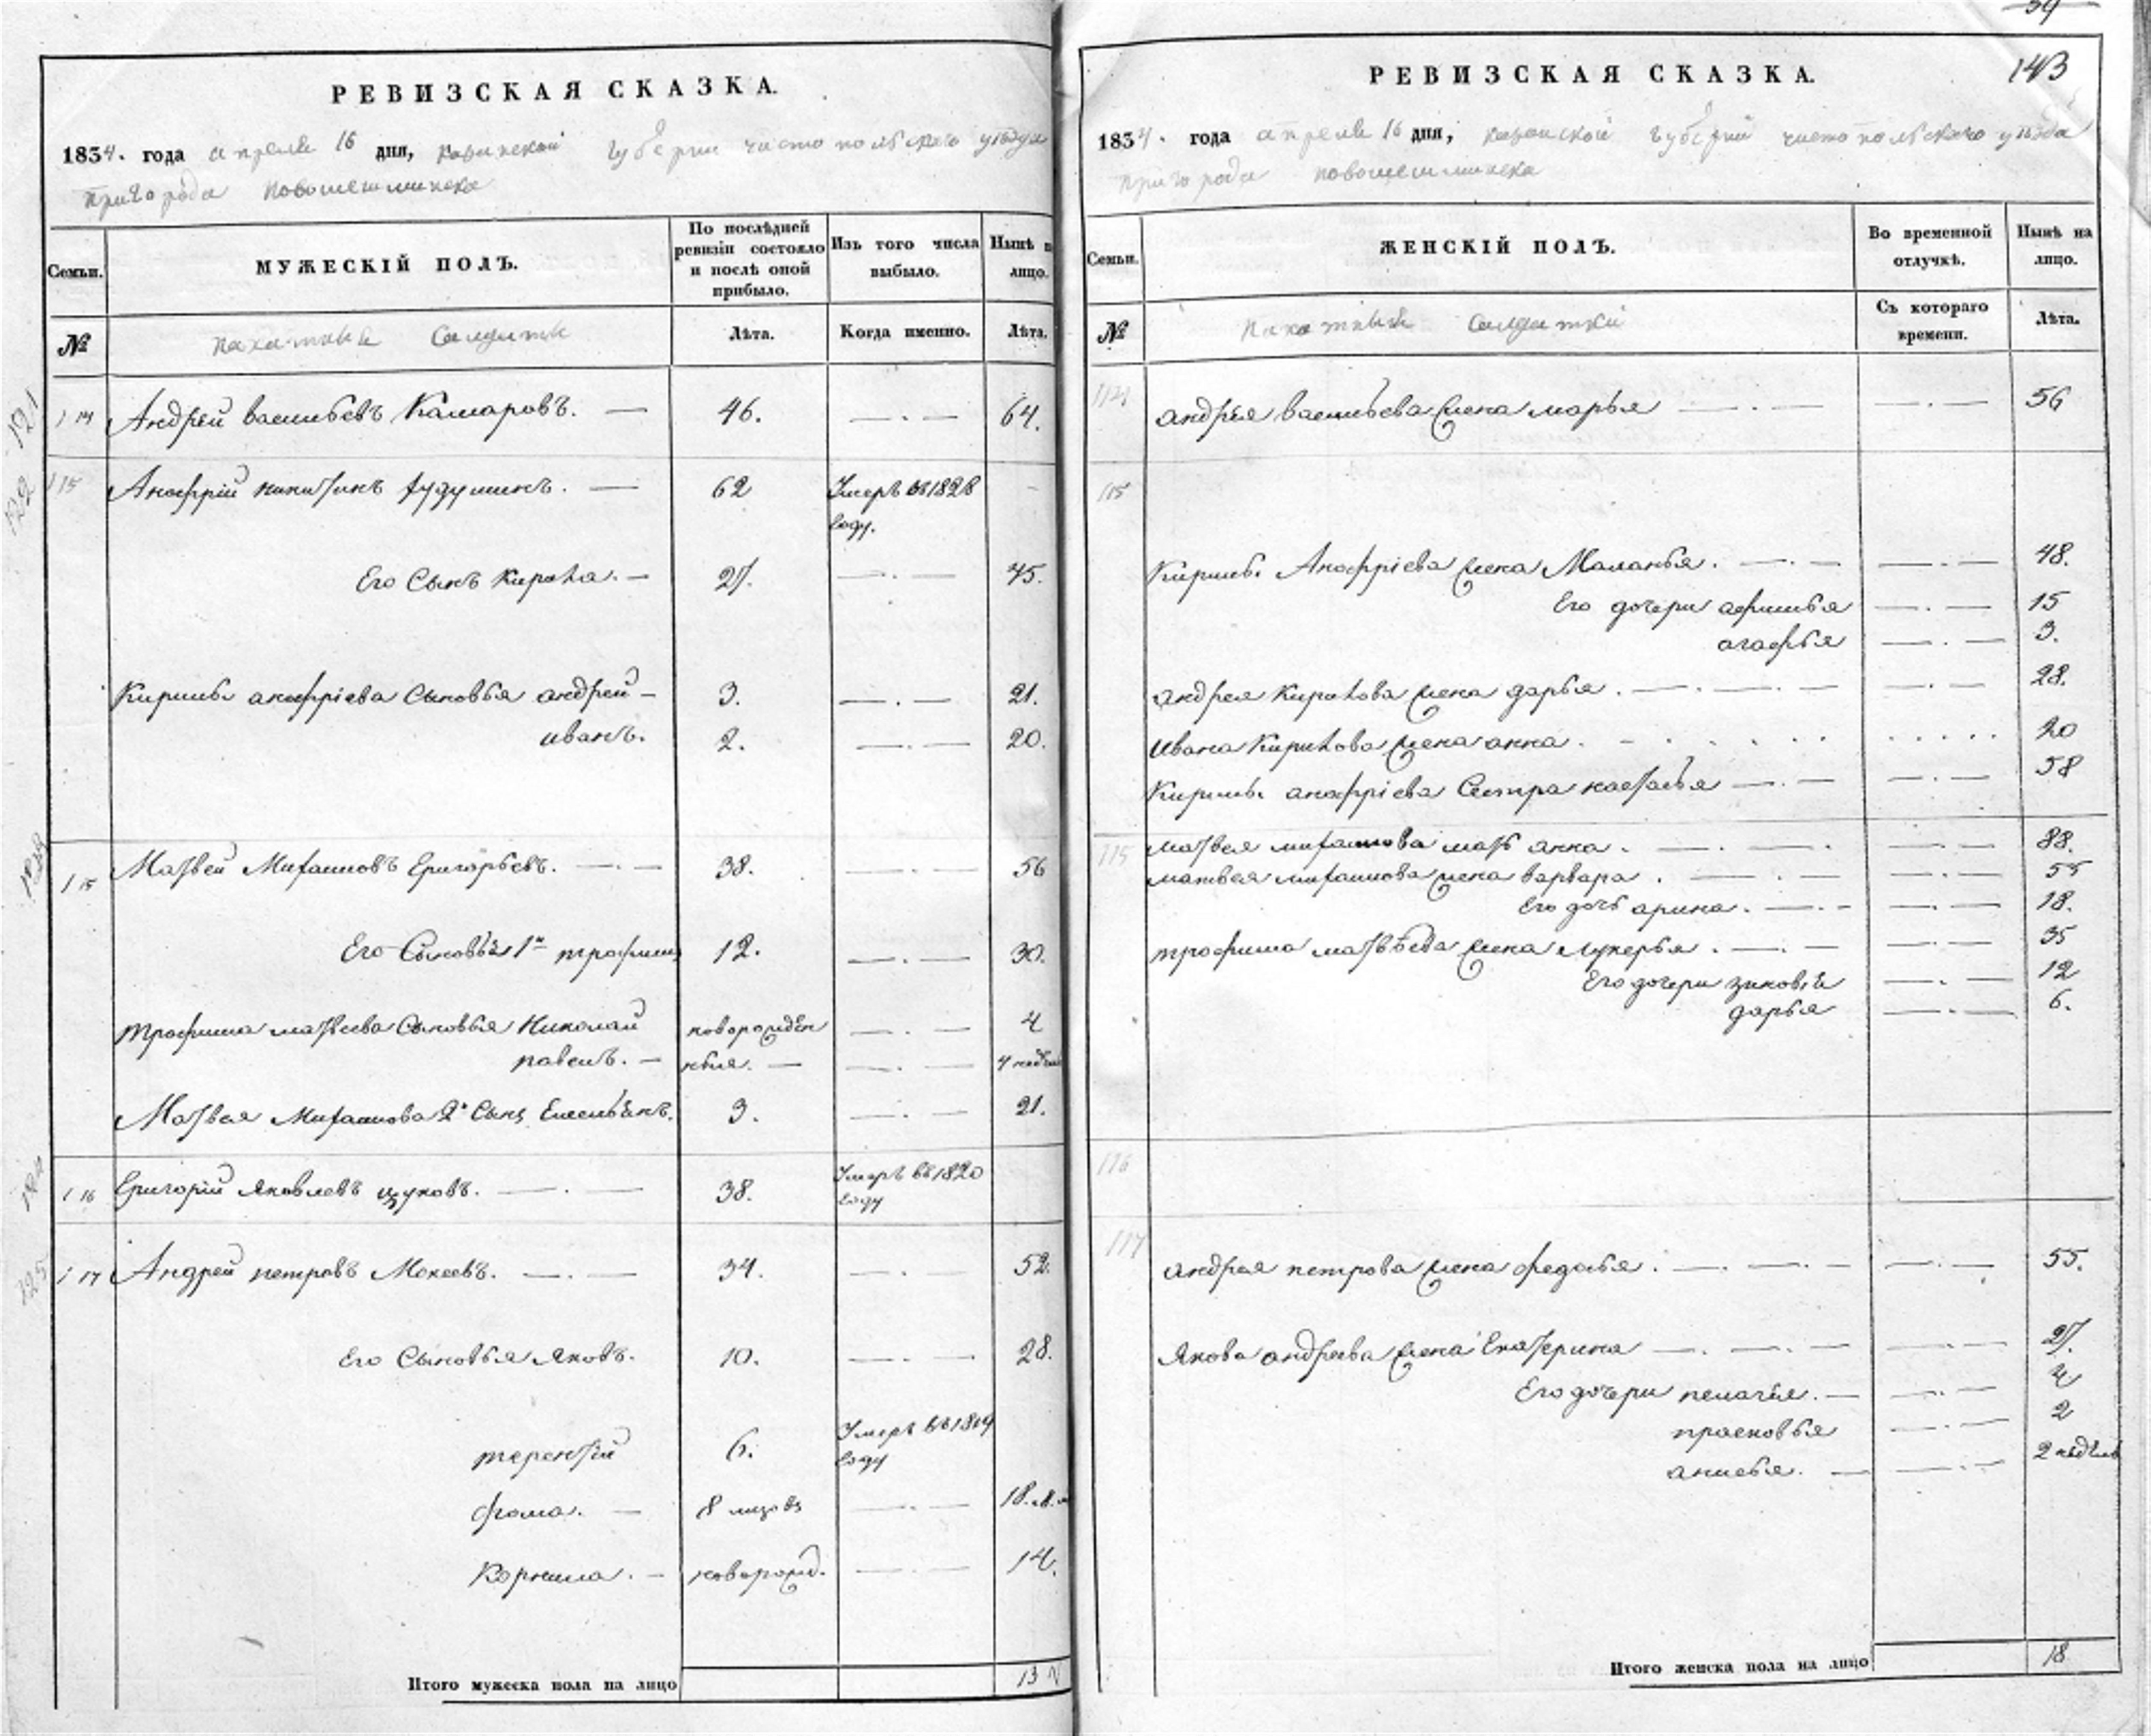 РЕВИЗСКАЯ СКАЗКА.
1834. года апреля 16 дня, казанской губернии чистопольского уѣзда
пригорода новошешминска
Семьи.
МУЖЕСКІЙ ПОЛЪ.
По послѣдней ревизіи состояло и послѣ оной прибыло.
Изъ того числа выбыло.
Нынѣ н лицо.
№
пахатныя Солдаты
Лѣта.
Когда именно.
Лѣта.
121
114 Андрей васильевъ Камаровъ. — 46. —.— 64.
122
115 Анофрій никитинъ 62 Умеръ въ 1828 году. -
Его Сынъ Кирила. — 27. —.— 45.
Кирилы анофріева Сыновья андрей — 3. —.— 21.
иванъ. 2. —.— 20.
115 Матвей Григорьевъ. —.— 38. —.— 56
Его Сыновья 1й трофимъ 12. —.— 30.
трофима матвеева Сыновья Николай новорожден —.— 4
павелъ. — ныя. — —.— 4 недѣли
Матвея 2й Сынъ Емельянъ. 3. —.— 21.
124
116 Григорій Яковлевъ 38. Умеръ въ 1820 году
125
117 Андрей петровъ Мокеевъ. —.— 34. —.— 52.
Его Сыновья Яковъ. 10. —.— 28.
терентій 6. Умеръ въ 1819 году
фома. — 8 мѣсяцовъ —.— 18.
Корнила. — новорожд. —.— 14.
Итого мужеска пола на лицо 13
59
143
РЕВИЗСКАЯ СКАЗКА.
1834. года апреля 16 дня, казанской губерніи чистопольского уѣзда
пригорода новошешминска
Семьи.
ЖЕНСКІЙ ПОЛЪ.
Во временной отлучкѣ.
Нынѣ на лицо.
№
Пахатныя Солдатки
Съ котораго времени.
Лѣта.
114 андрея васильева жена марья —.— —.— 56
115
Кирилы Анофріева жена Маланья. —.— —.— 48.
Его дочери афимья —.— 15
агафья —.— 3.
андрея Кирилова жена дарья. —.—.— —.— 28.
Ивана Кирилова жена анна. - . . . . . . . . . 20
Кирилы анофріева Сестра настасья —.— —.— 58
115 матвея мать анна. —.—. —.— 88.
матвея жена варвара. —.— —.— 55
Его дочь арина. —.- —.— 18.
трофима матвѣева жена лукерья. —.— —.— 35
Его дочери зиновія —.— 12
дарья —.— 6.
116
117 андрея петрова жена федосья. —.—.— —.— 55.
Якова андреева жена Екатерина —.—.— —.— 27.
Его дочери пелагея. — —.— 4
прасковья —.— 2
анисья. — —.— 2 недѣль
Итого женска пола на лицо 18